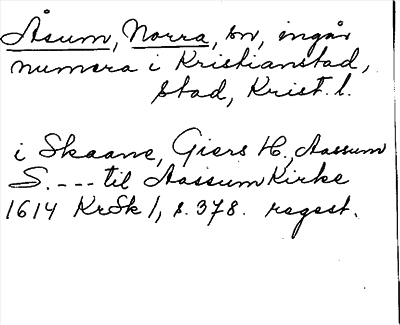 Åsum, Norra, sn, ingår
numera i Kristianstad,
stad, Krist. l.
i Skaane, Giers H., Aassum
S. --- til Aassum Kirke
1614 KrSk 1, s. 378. regest.